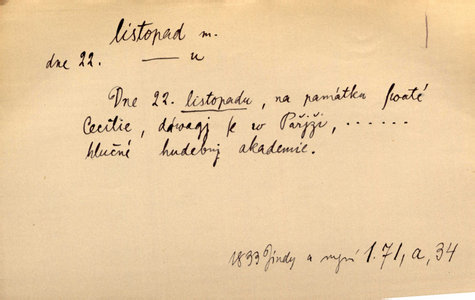 listopad m.
dne 22. — u
Dne 22. listopadu, na památku swaté
Cecilie, dáwagj se w Pařjži, ......
hlučné hudebnj akademie.
1833 Jindy a nynj 1.71, a, 34